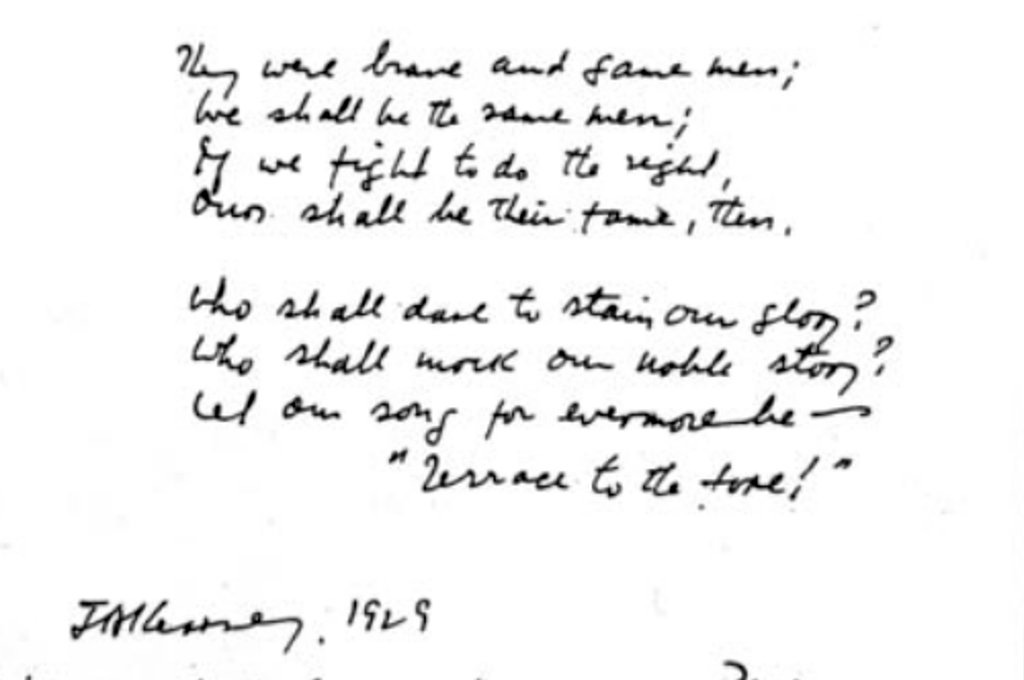 They were brave and game men;
We shall be the same men;
If we fight to do the right,
Ours shall be their fame, then.
Who shall dare to stain our glory?
Who shall mock our noble story?
Let our song for evermore be —
"Terrace to the fore!"
1929